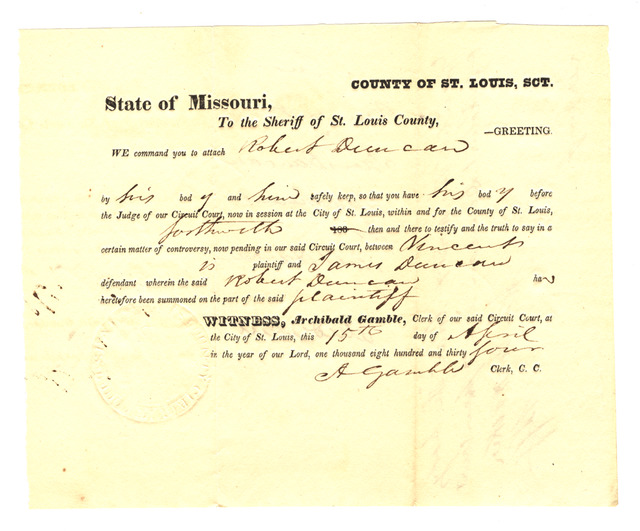 COUNTY OF ST. LOUIS, SCT.
State of Missouri,
To the Sheriff of St. Louis County,
—GREETING.
WE command you to attach Robert Duncan
by his bod y and him safely keep, so that you have his bod y before
the Judge of our Circuit Court, now in session at the City of St. Louis, within and for the County of St. Louis,
forthwith 183 then and there to testify and the truth to say in a
certain matter of controversy, now pending in our said Circuit Court, between Vincent
is plaintiff and James Duncan
defendant wherein the said Robert Duncan has
heretofore been summoned on the part of the said plaintiff
WITNESS, Archibald Gamble, Clerk of our said Circuit Court, at
the City of St. Louis, this 15th day of April
in the year of our Lord, one thousand eight hundred and thirty four
A Gamble Clerk, C. C.